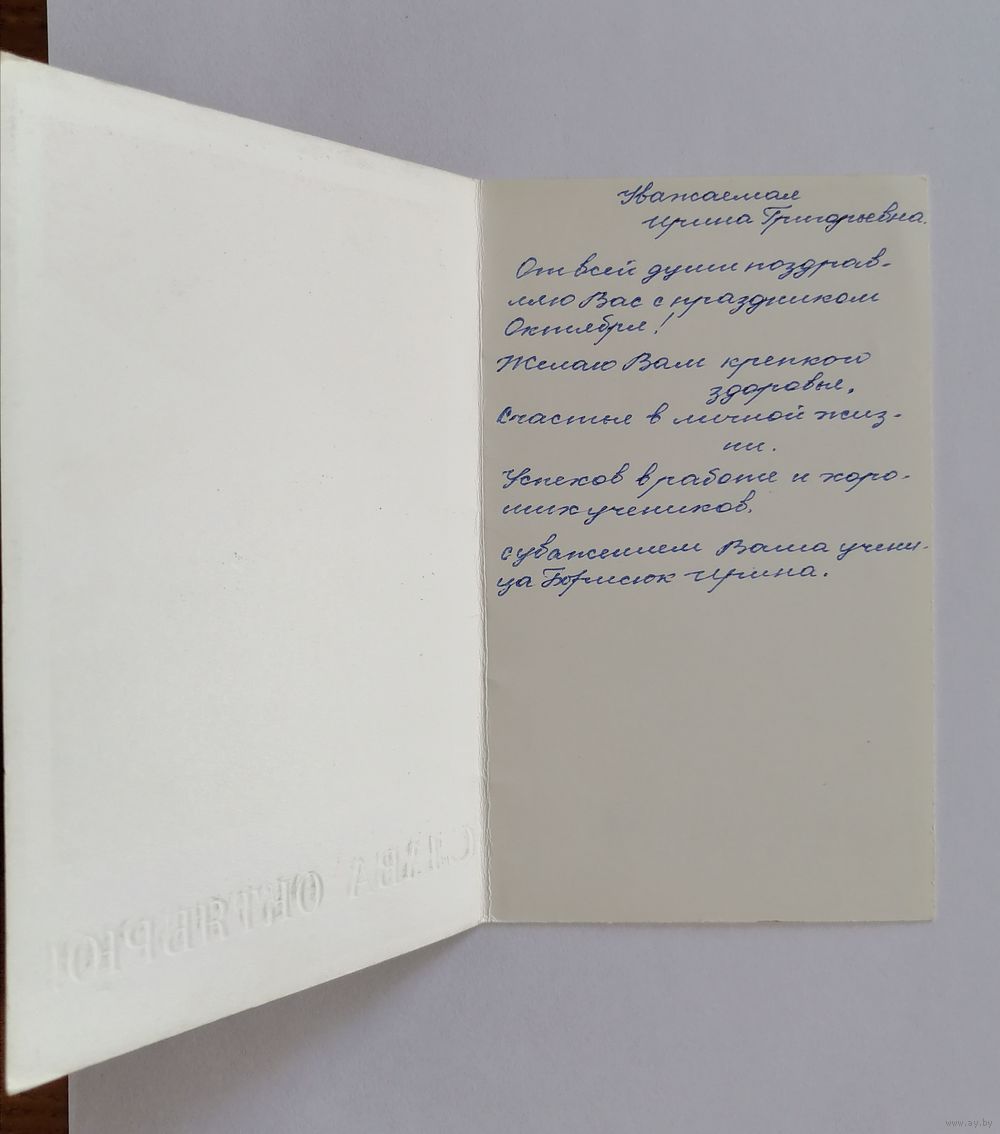 СЛАВА ОКТЯБРЮ!
Уважаемая
Ирина Григорьевна.
От всей души поздрав-
ляю Вас с праздником
Октября!
Желаю Вам крепкого
здоровья,
Счастья в личной жиз-
ни.
Успехов в работе и хоро-
ших учеников.
с уважением Ваша учени-
ца Ирина.
www.ay.by